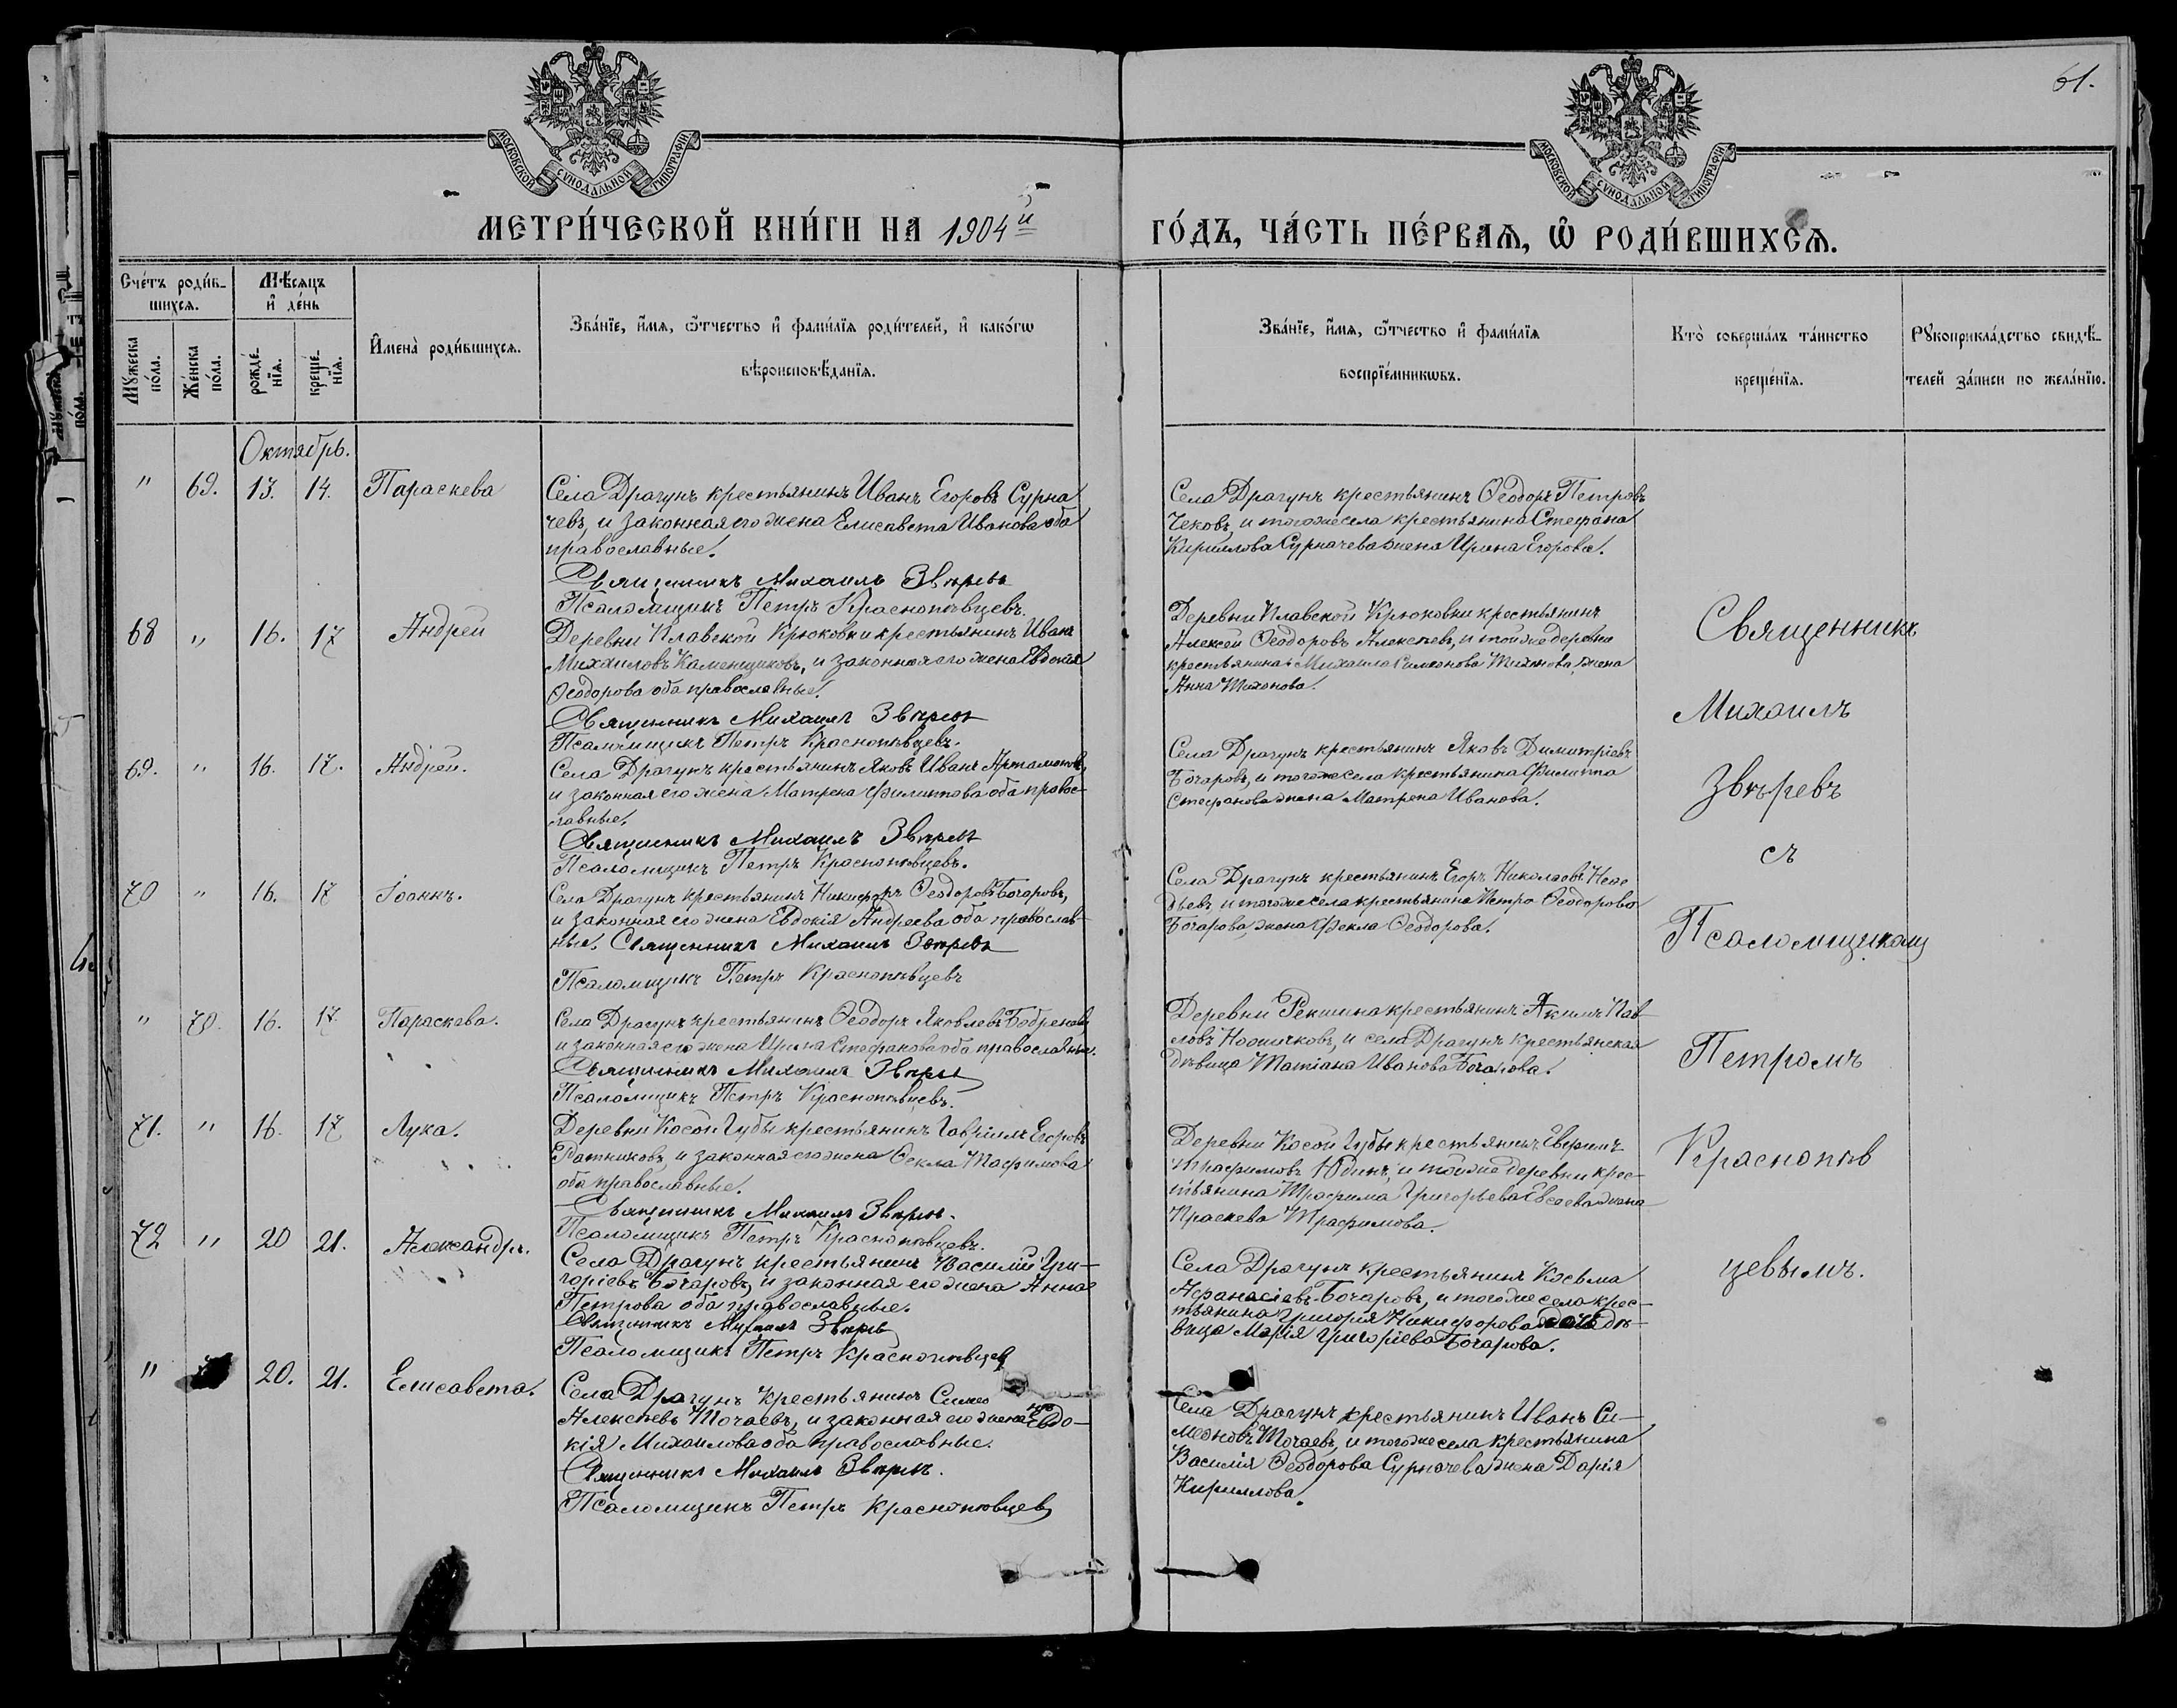 61.
МОСКОВСКОЙ СѴНОДАЛЬНОЙ ТИПОГРАФІИ
МОСКОВСКОЙ СѴНОДАЛЬНОЙ ТИПОГРАФІИ
МЕТРИ́ЧЕСКОЙ КНИ́ГИ НА 1904й
ГО́ДЪ, ЧА́СТЬ ПЕ́РВАѦ, Ѡ РОДИ́ВШИХСѦ.
Сче́тъ роди́в-
шихсѧ.
Мꙋжеска
по́ла.
Же́нска
по́ла.
Мѣ́сѧцъ
и҆ де́нь
рожде́-
нїѧ.
креще́-
нїѧ.
И҆мена̀ роди́вшихсѧ.
Зва́нїе, и҆́мѧ, ѻ҆́тчество и҆ фами́лїѧ роди́телей, и҆ како́гѡ
вѣроисповѣ́данїѧ.
Зва́нїе, и҆́мѧ, ѻ҆́тчество и҆ фами́лїѧ
воспрїе́мникѡвъ.
Кто̀ соверша́лъ та́инство
креще́нїѧ.
Рꙋкоприкла́дство свидѣ́-
телей за́писи по жела́нїю.
Октябрь.
" 69. 13. 14. Параскева
Села Драгунъ крестьянинъ Иванъ Егоровъ Сурна
чевъ, и законная его жена Елисавета Иванова оба
православные.
Священникъ Михаилъ Звѣревъ
Псаломщикъ Петръ Краснопѣвцевъ.
Села Драгунъ крестьянинъ Ѳеодоръ Петровъ
Чековъ, и тогоже села крестьянина Стефана
Кириллова Сурначева жена Ирина Егорова.
68 " 16. 17 Андрей
Деревни Плавской Крюковки крестьянинъ Иванъ
Михаиловъ Каменщиковъ, и законная его жена Евдокія
Ѳеодорова оба православные.
Священникъ Михаилъ Звѣревъ
Псаломщикъ Петръ Краснопѣвцевъ.
Деревни Плавской Крюковки крестьянинъ
Алексей Ѳеодоровъ Алексѣевъ, и тойже деревни
крестьянина Михаила Симонова Тихонова жена
Анна Тихонова.
69. " 16. 17. Андрей.
Села Драгунъ крестьянинъ Яковъ Иванъ Артамоновъ,
и законная его жена Матрена Филиппова оба правос-
лавные.
Священникъ Михаилъ Звѣревъ
Псаломщикъ Петръ Краснопѣвцевъ.
Села Драгунъ крестьянинъ Яковъ Димитріевъ
Бочаровъ, и тогоже села крестьянина Филиппа
Стефанова жена Матрена Иванова.
70 " 16. 17 Іоаннъ.
Села Драгунъ крестьянинъ Никифоръ Ѳеодоровъ Бочаровъ,
и законная его жена Евдокія Андреева оба православ-
ные. Священникъ Михаилъ Звѣревъ
Псаломщикъ Петръ Краснопѣвцевъ
Села Драгунъ крестьянинъ Егоръ Николаевъ
и тогоже села крестьянина Петра Ѳеодорова
Бочарова, жена Фекла Ѳеодорова.
" 70. 16. 17. Параскева.
Села Драгунъ крестьянинъ Ѳеодоръ Яковлевъ
и законная его жена Ирина Стефанова оба православные.
Священникъ Михаилъ Звѣревъ
Псаломщикъ Петръ Краснопѣвцевъ.
Деревни Рекшина крестьянинъ Акимъ Пав-
ловъ и села Драгунъ крестьянская
дѣвица Татіана Иванова Бочарова.
71. " 16. 17 Лука.
Деревни Косой Губы крестьянинъ Гавріилъ Егоровъ
и законная его жена Ѳекла
оба православные.
Священникъ Михаилъ Звѣревъ.
Псаломщикъ Петръ Краснопѣвцевъ.
Деревни Косой Губы крестьянинъ Евфимъ
Трафимовъ Юдинъ, и тойже деревни крес-
тьянина Трофима Григорьева Евсеева жена
Праскева Трафимова.
72 " 20 21. Александръ.
Села Драгунъ крестьянинъ Василій Гри-
горіевъ Бочаровъ, и законная его жена Анна
Петрова оба православные.
Священникъ Михаилъ Звѣревъ
Псаломщикъ Петръ Краснопѣвцевъ
Села Драгунъ крестьянинъ Косьма
Афанасіевъ Бочаровъ, и тогоже села крес-
тьянина Григорія Никифорова дочь дѣ-
вица Марія Григоріева Бочарова.
" 20. 21. Елисавета.
Села Драгунъ крестьянинъ Симео
нъ
Алексѣевъ Точаевъ, и законная его жена Евдо-
кія Михаилова оба православные.
Священникъ Михаилъ Звѣревъ.
Псаломщикъ Петръ Краснопѣвцевъ
Села Драгунъ крестьянинъ Иванъ Си-
меоновъ Точаевъ, и тогоже села крестьянина
Василія Ѳеодорова Сурначева жена Дарія
Кириллова.
Священникъ
Михаилъ
Звѣревъ
съ
Псаломщикомъ
Петромъ
Краснопѣв
цевымъ.